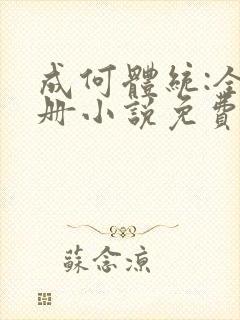 成何體統:全
冊小說免費
蘇念涼